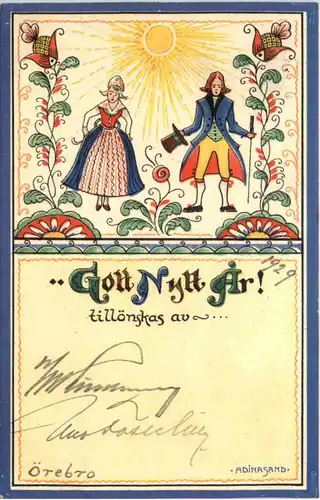 ·· Gott Nytt År!
1929
tillönskas av ~ ···
Örebro
·ADINASAND·